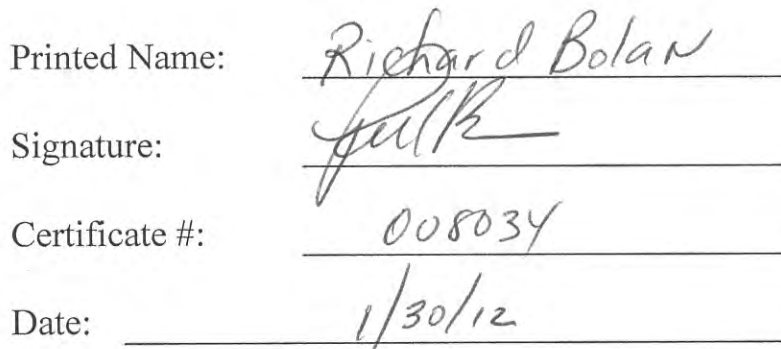 Printed Name: Richard Bolan
Signature:
Certificate #: 008034
Date: 1/30/12